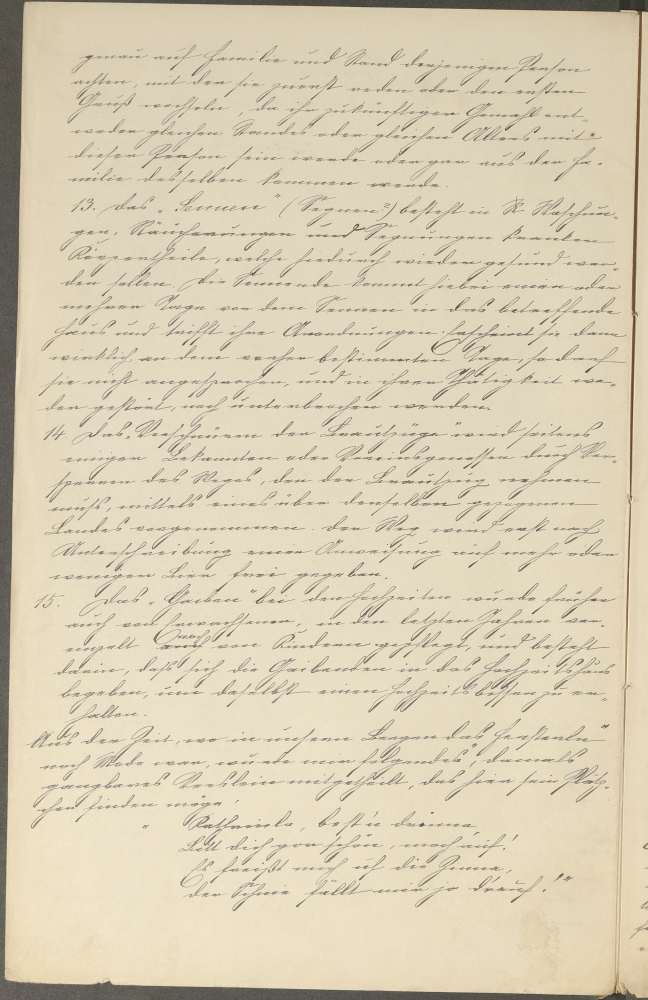 genau auf Familie und Stand derjenigen Person
achten, mit der sie zuerst reden oder den ersten
Gruß wechseln, da ihr zukünftiger Gemahl ent-
weder gleichen Standes oder gleichen Alters mit
dieser Person sein werde oder gar aus der Fa-
milie desselben kommen werde.
13. Das „Sennen" (Segnen?) besteht in Waschun-
gen, Räucherungen und Segnungen kranker
Körpertheile, welche hiedurch wieder gesund wer-
den sollen. Die Sennende kommt hiebei einen oder
mehrere Tage vor dem Sennen in das betreffende
Haus und trifft ihre Anordnungen. Erscheint sie dann
wirklich an dem vorher bestimmten Tage, so darf
sie nicht angesprochen, und in ihrer Thätigkeit we-
der gestört, noch unterbrochen werden.
14. Das „Verschnüren der Brautzüge" wird seitens
einiger Bekannten oder Vereinsgenossen durch Ver-
sperren des Weges, den der Brautzug nehmen
muß, mittels eines über denselben gezogenen
Bandes vorgenommen. Der Weg wird erst nach
Unterschreibung einer Anweisung auf mehr oder
weniger Bier frei gegeben.
15. Das „Gaiben" bei den Hochzeiten wurde früher
auch von Erwachsenen, in den letzten Jahren ver-
einzelt noch von Kindern gepflegt, und besteht
darin, daß sich die Gaibenden in das Hochzeitshaus
begeben, um daselbst einen Hochzeitsbissen zu er-
halten.
Aus der Zeit, wo in unsern Bergen das „Fensterln"
noch Mode war, wurde mir folgendes, damals
gangbares Verslein mitgetheilt, das hier sein Plätz-
chen finden möge:
„Kathreinla, best'n drinna
Bitt dich gor schön, mach auf!
Es freißt mich uf die Zinna,
der Schnie fällt mir jo drauf!"